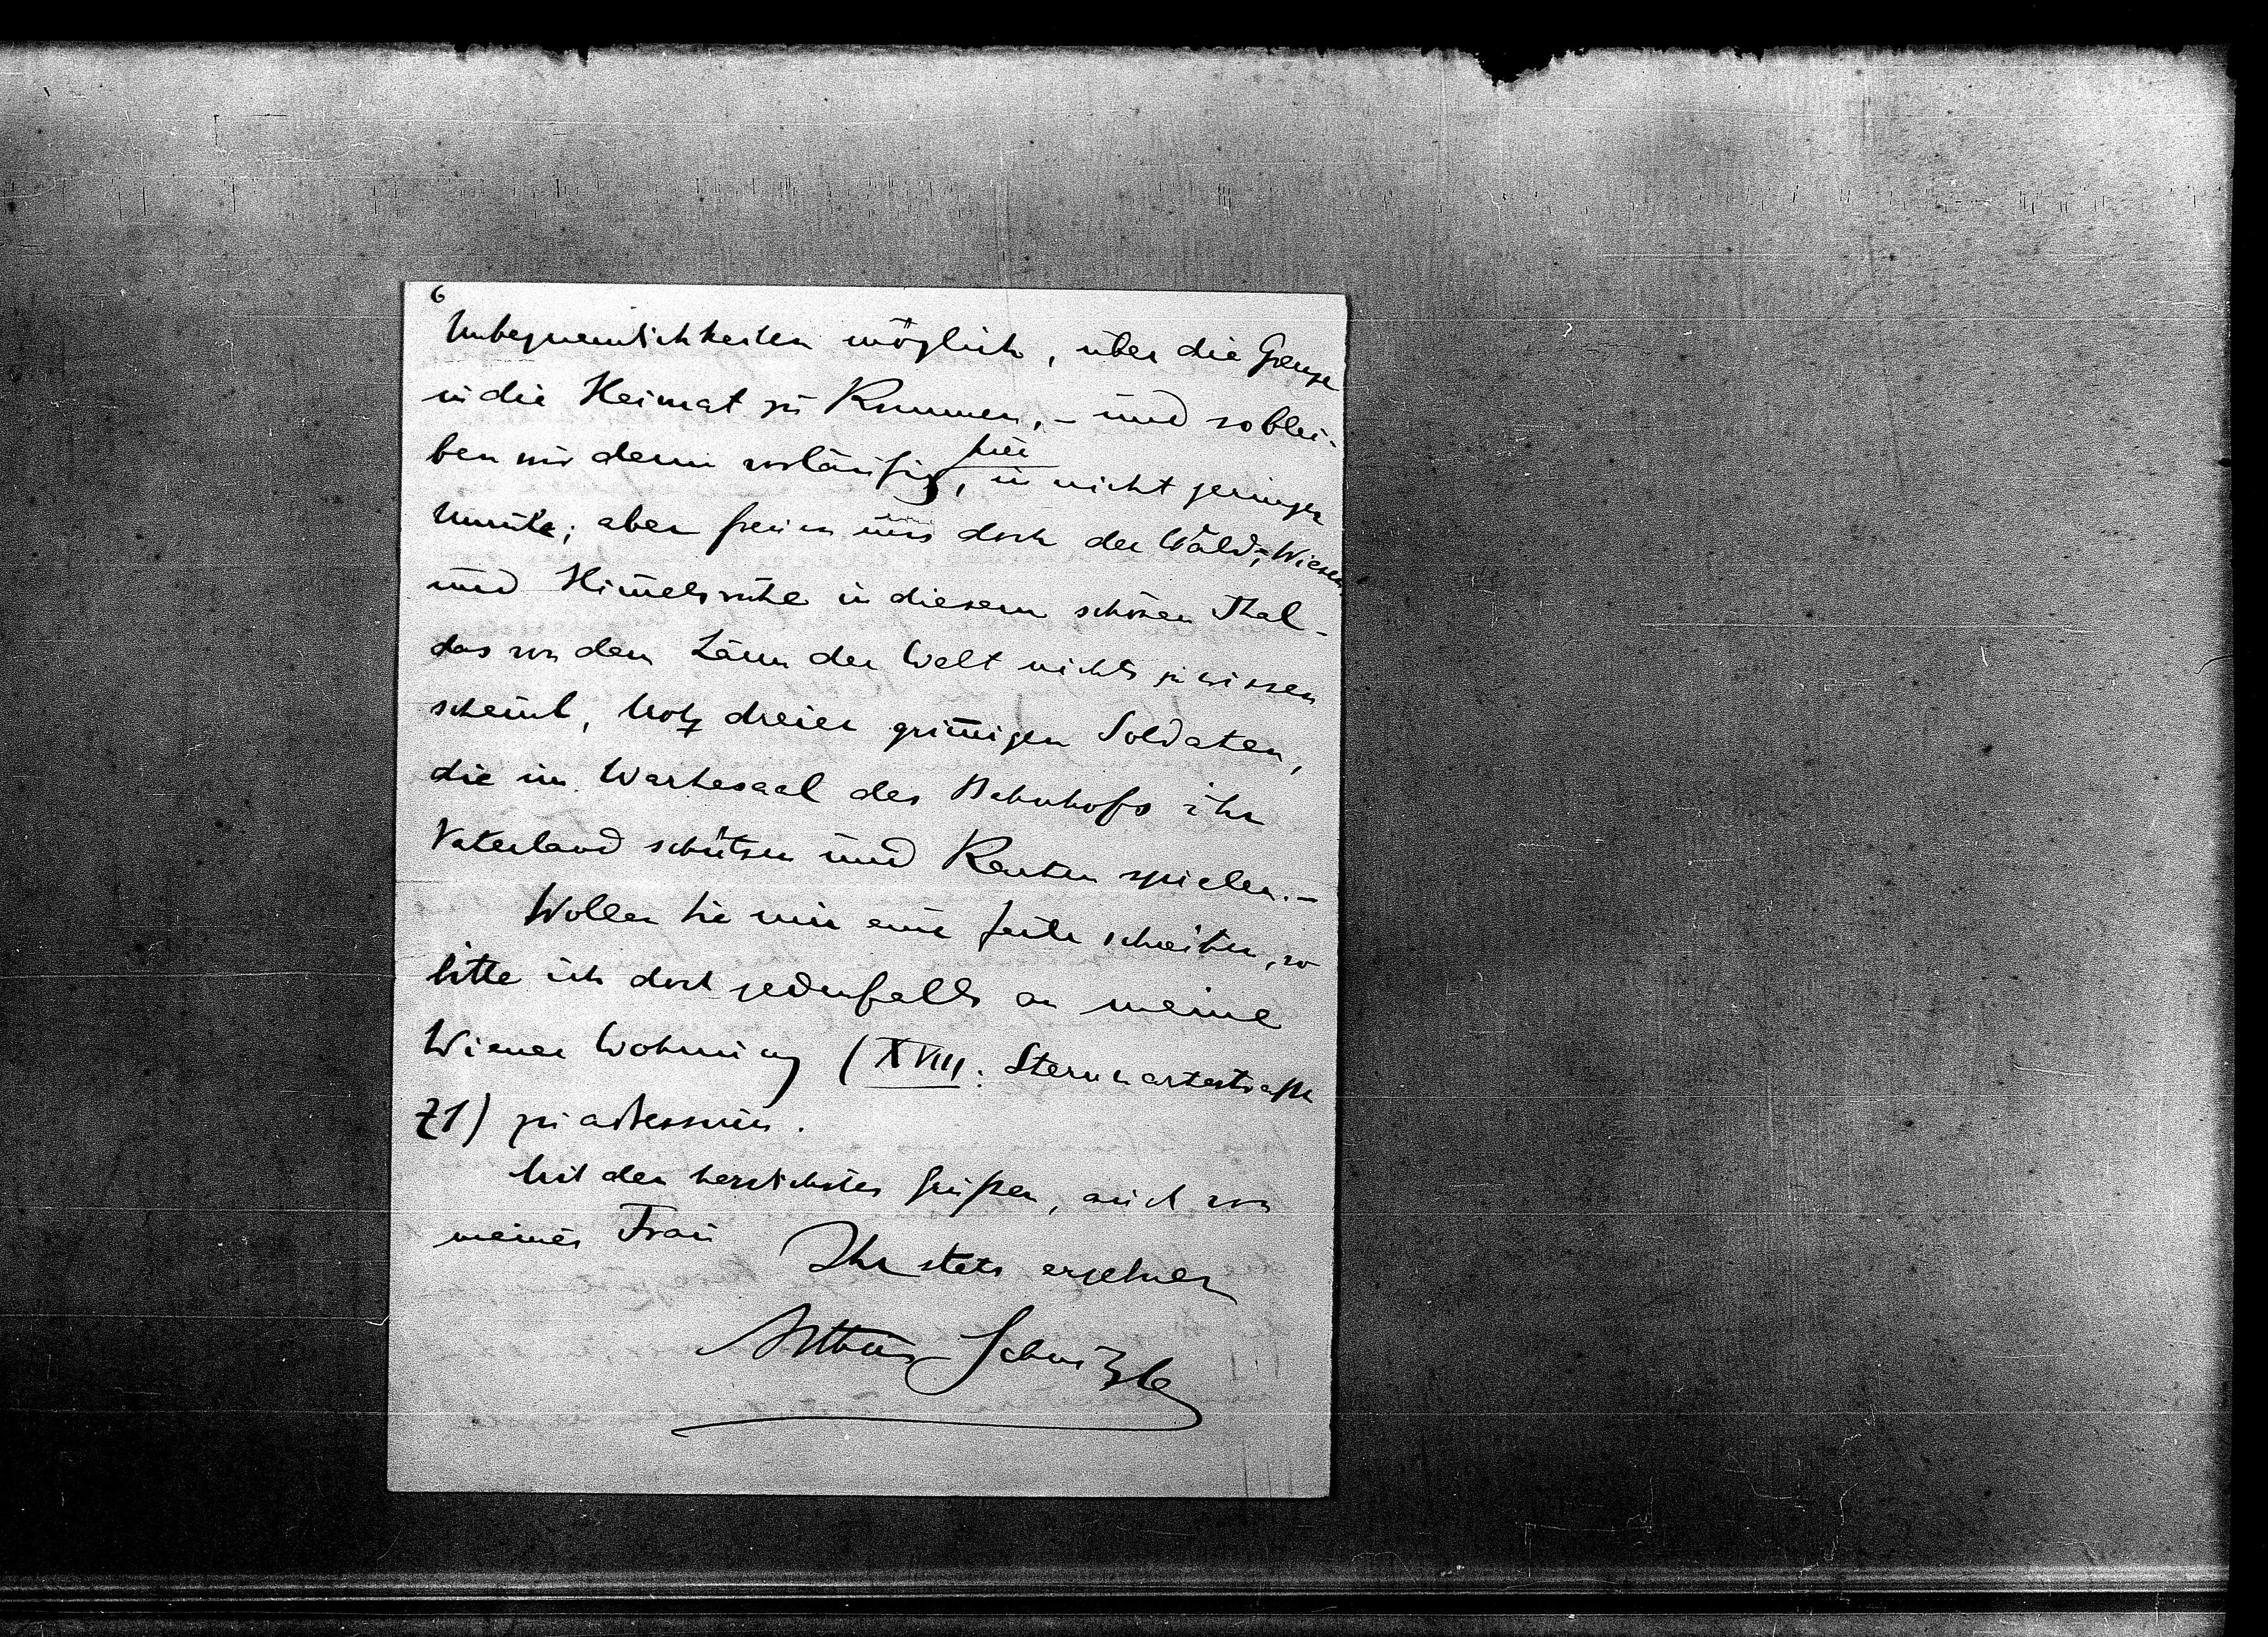 6
Unbequemlichkeiten möglich, über die Grenze
in die Heimat zu kommen, – und so blei-
ben wir denn vorläufig hier, in nicht geringer
Unruhe; aber freuen uns doch der Wald-, Wiesen
und Him̄elsruhe in diesem schönen Thal –
das von dem Lärm der Welt nichts zu wissen
scheint, trotz dreier grim̄igen Soldaten,
die im Wartesaal des Bahnhofs ihr
Vaterland schützen und Karten spielen. –
Wollen Sie mir eine Zeile schreiben, so
bitte ich doch jedenfalls an meine
Wiener Wohnung (XVIII. Sternwartestraße
71) zu adressiren.
Mit den herzlichsten Grüßen, auch von
meiner Frau
Ihr stets ergebner
Arthur Schnitzler